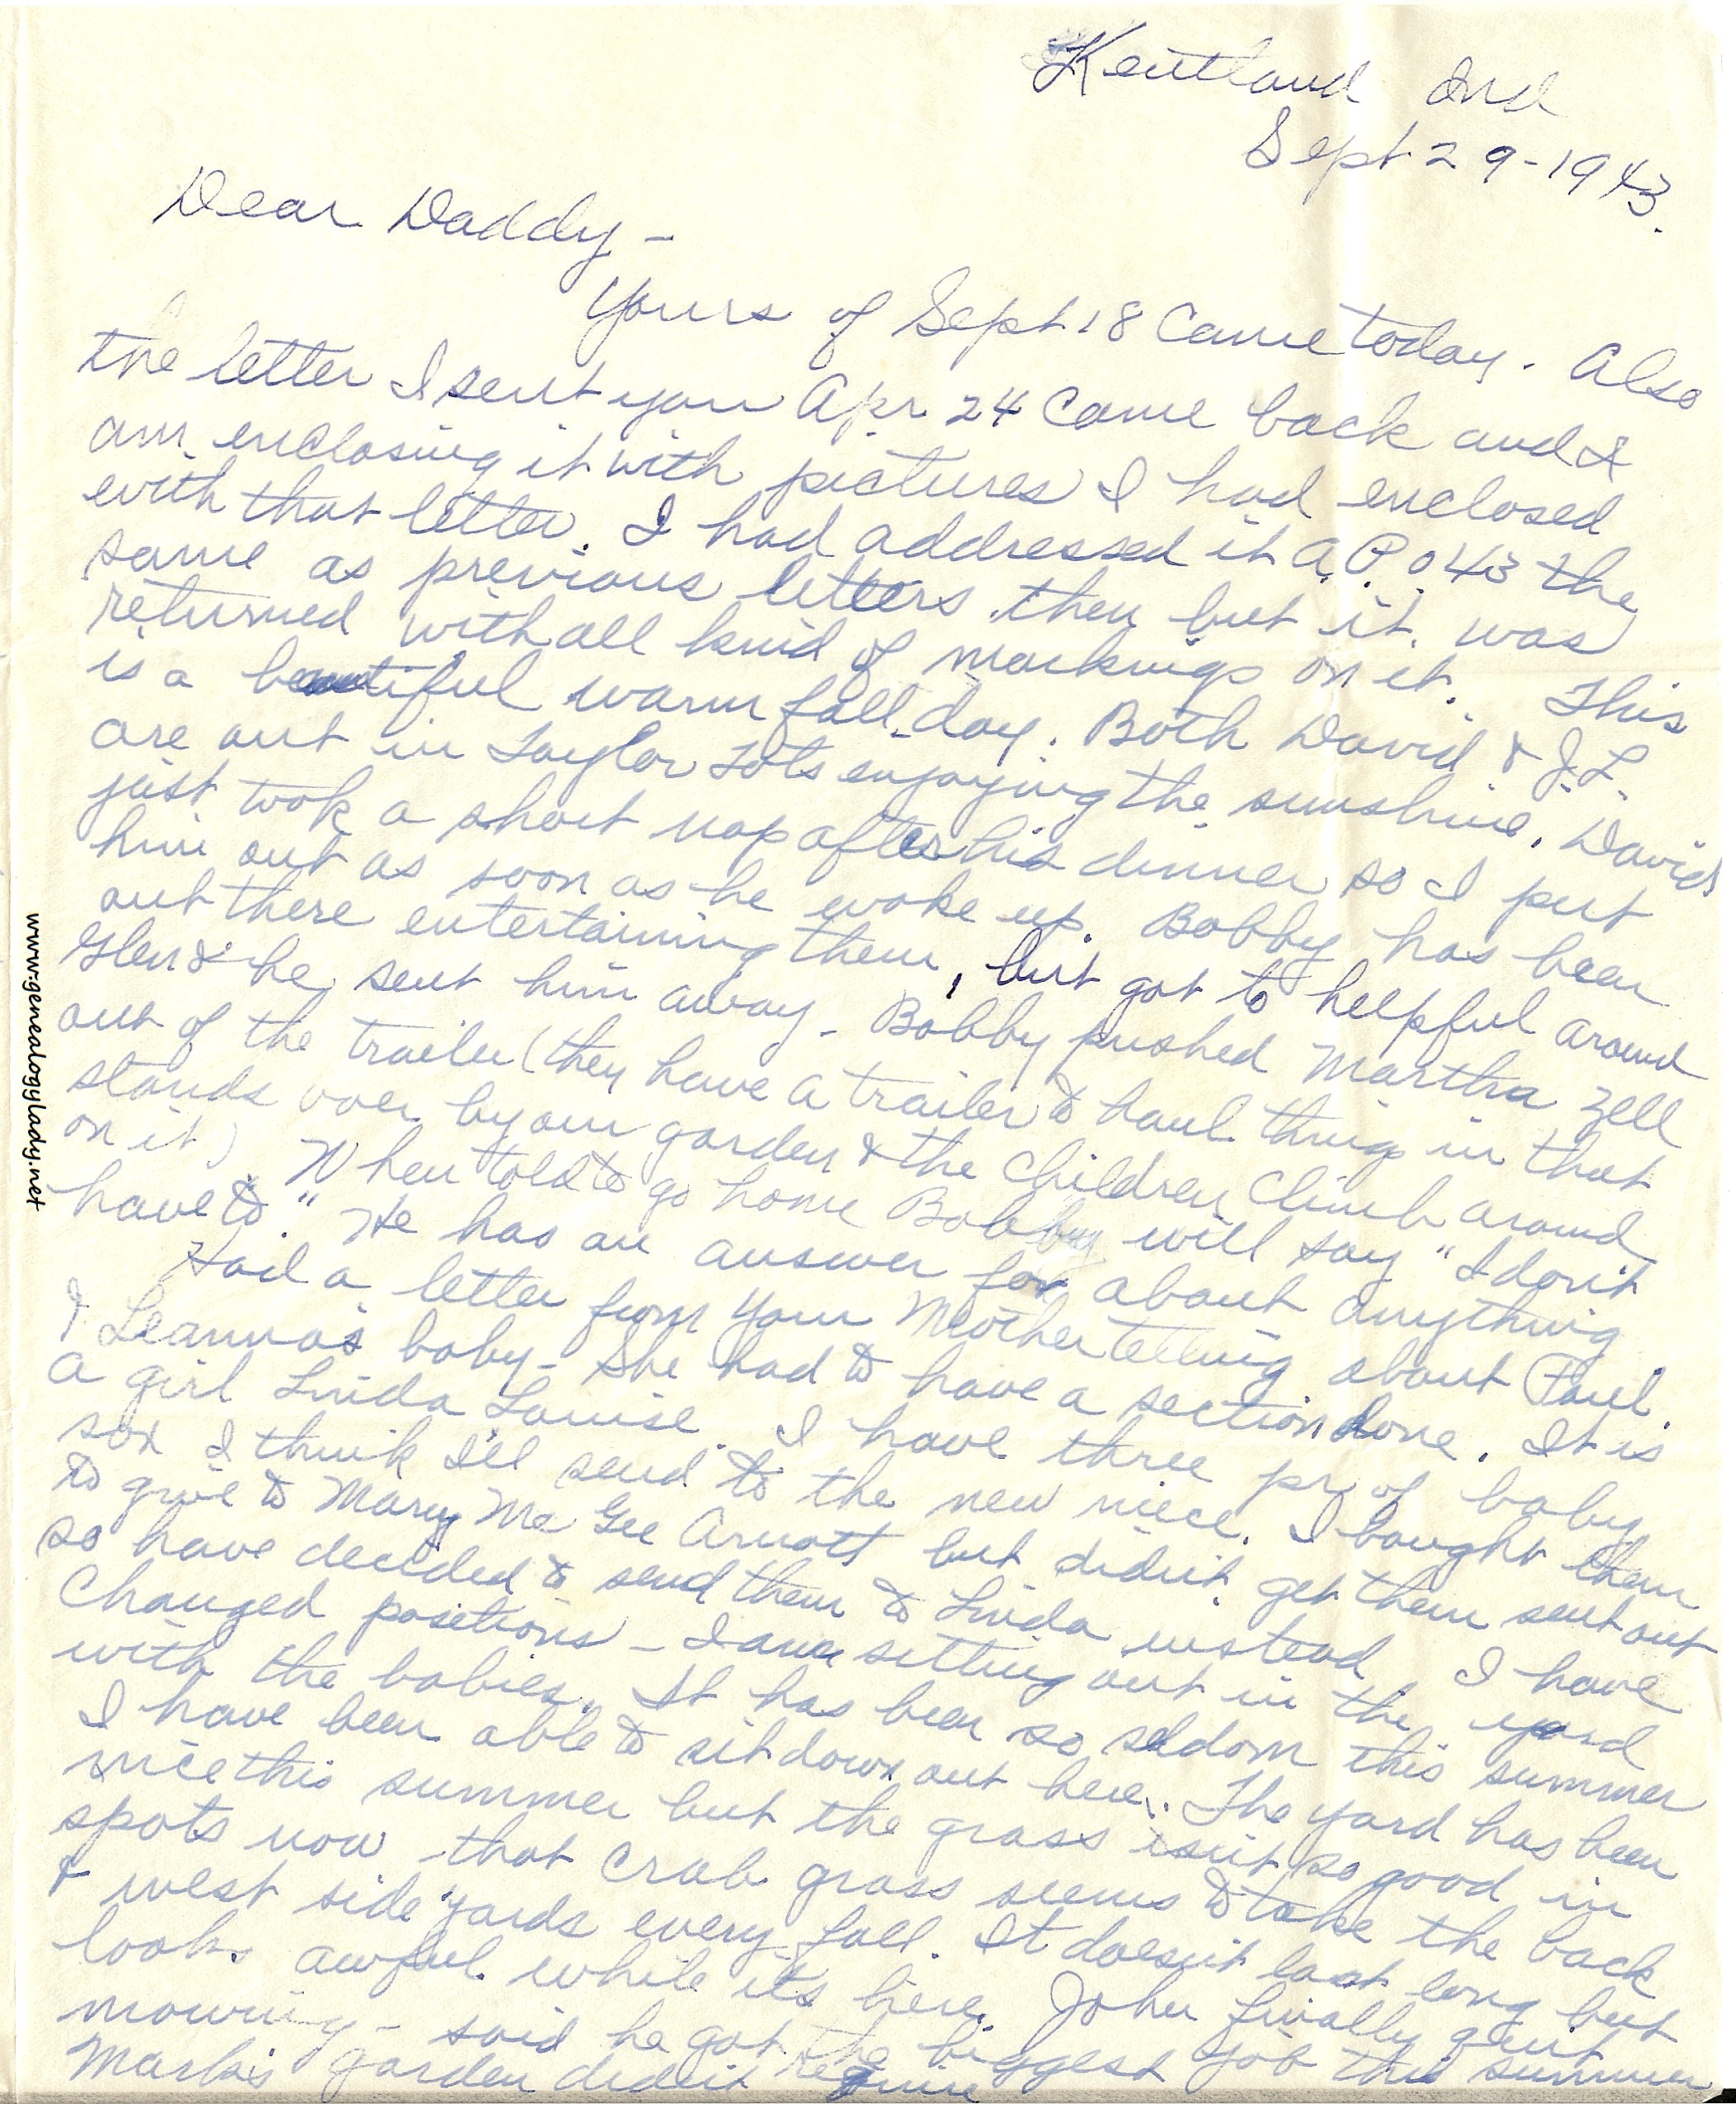 Kentland Ind
Sept 29-1943.
Dear Daddy -
Yours of Sept 18 Came today. Also
the letter I sent you Apr 24 Came back and I
am enclosing it with pictures I had enclosed
with that letter. I had addressed it A.P.O 43 the
same as previous letters then but it was
returned with all kind of markings on it. This
is a beautiful warm fall day. Both David & J.L.
are out in Taylor Tots enjoying the sunshine. David
just took a short nap after his dinner so I put
him out as soon as he woke up. Bobby has been
out there entertaining them, but got to helpful around
Glen & he sent him away - Bobby pushed Martha Zell
out of the trailer (they have a trailer to haul thing in that
stands over by our garden & the Children Climb around
on it) When told to go home Bobby will say "I don't
have to." He has an answer for about anything
Had a letter from your Mother telling about Paul.
& Leanna's baby - She had to have a section done. It is
a girl Linda Louise. I have three pr of baby
sox I think I'll send to the new niece. I bought them
to give to Mary Mc Gee Arnott but didn't get them sent out
so have decided to send them to Linda instead I have
Changed positions - I am sitting out in the yard
with the babies. It has been so seldom this summer
I have been able to sit down out here. The yard has been
nice this summer but the grass isn't so good in
spots now that Crab grass seems to take the back
& west side yards every fall. It doesn't last long but
looks awful while its here. John finally quit
mowing - said he got the biggest job this summer
Mark's garden didn't require
www.genealogylady.net